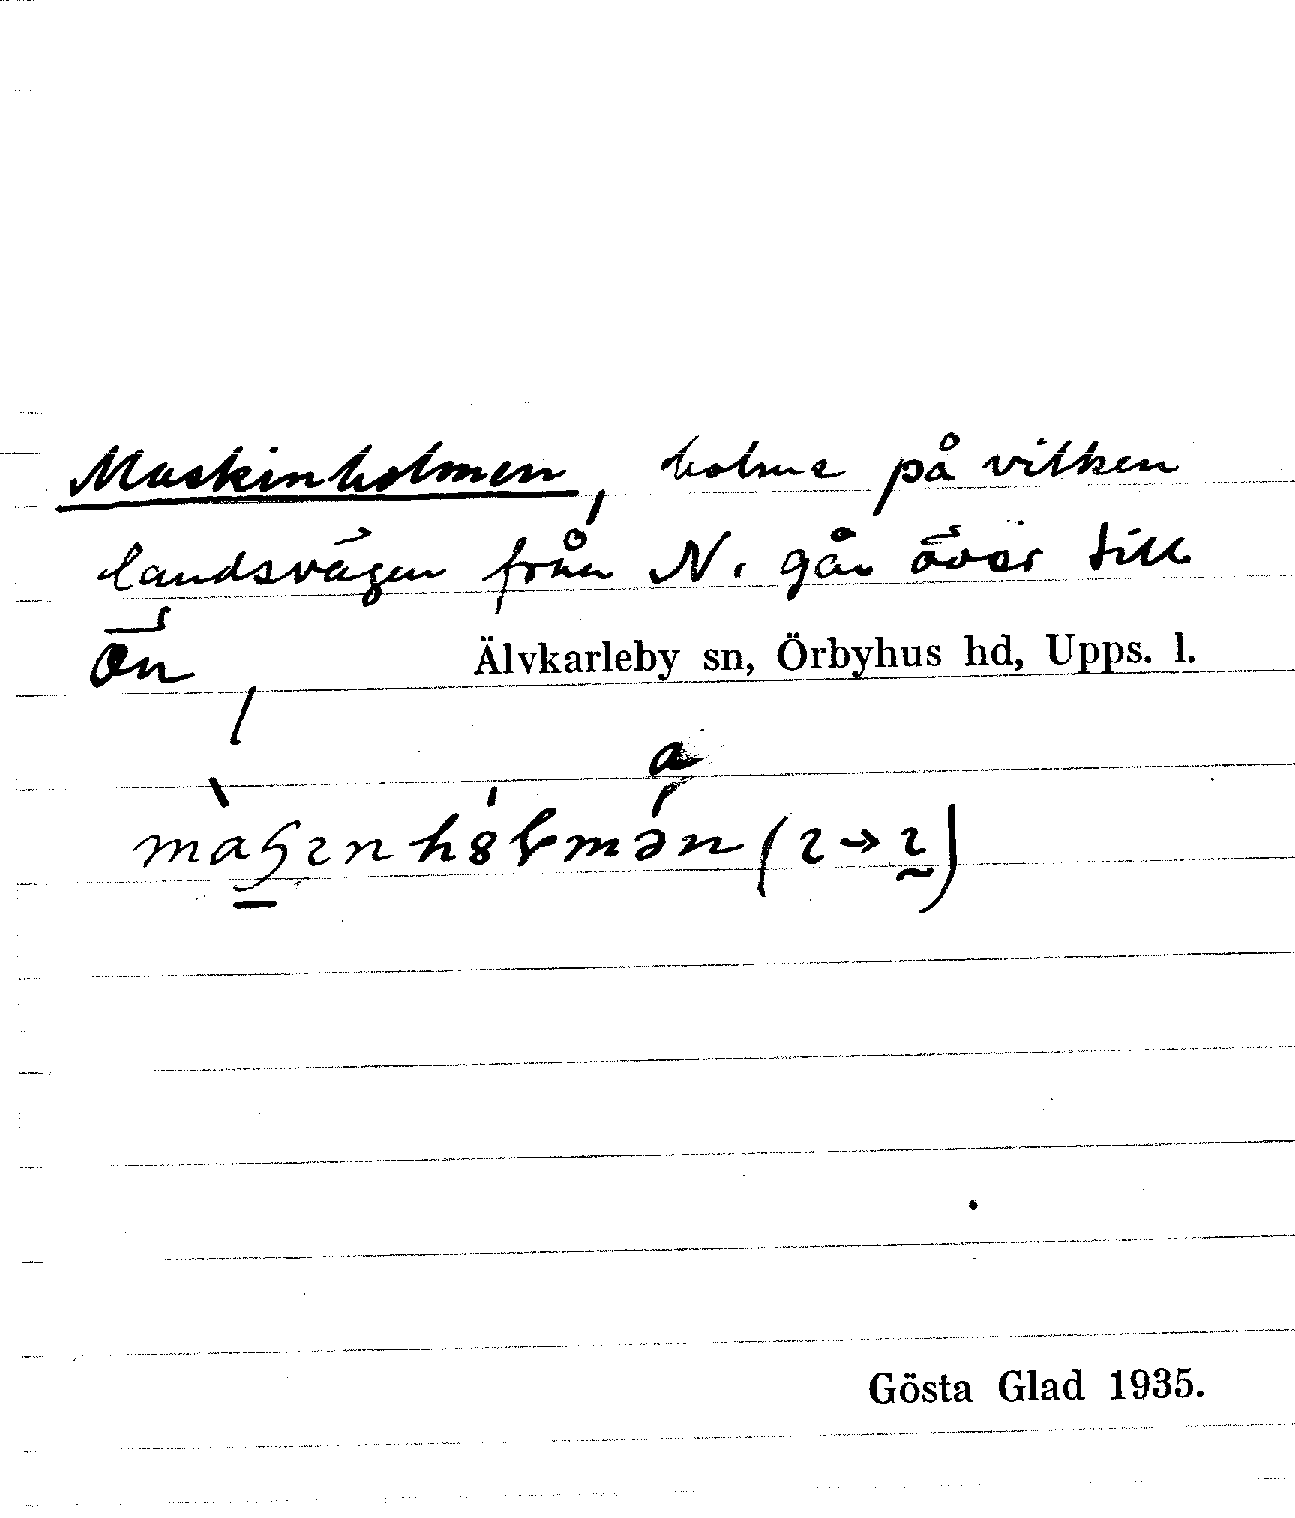 Maskinholmen, holme på vilken
landsvägen från N. går över till
Ön, Älvkarleby sn, Örbyhus hd, Upps. l.
Gösta Glad 1935.